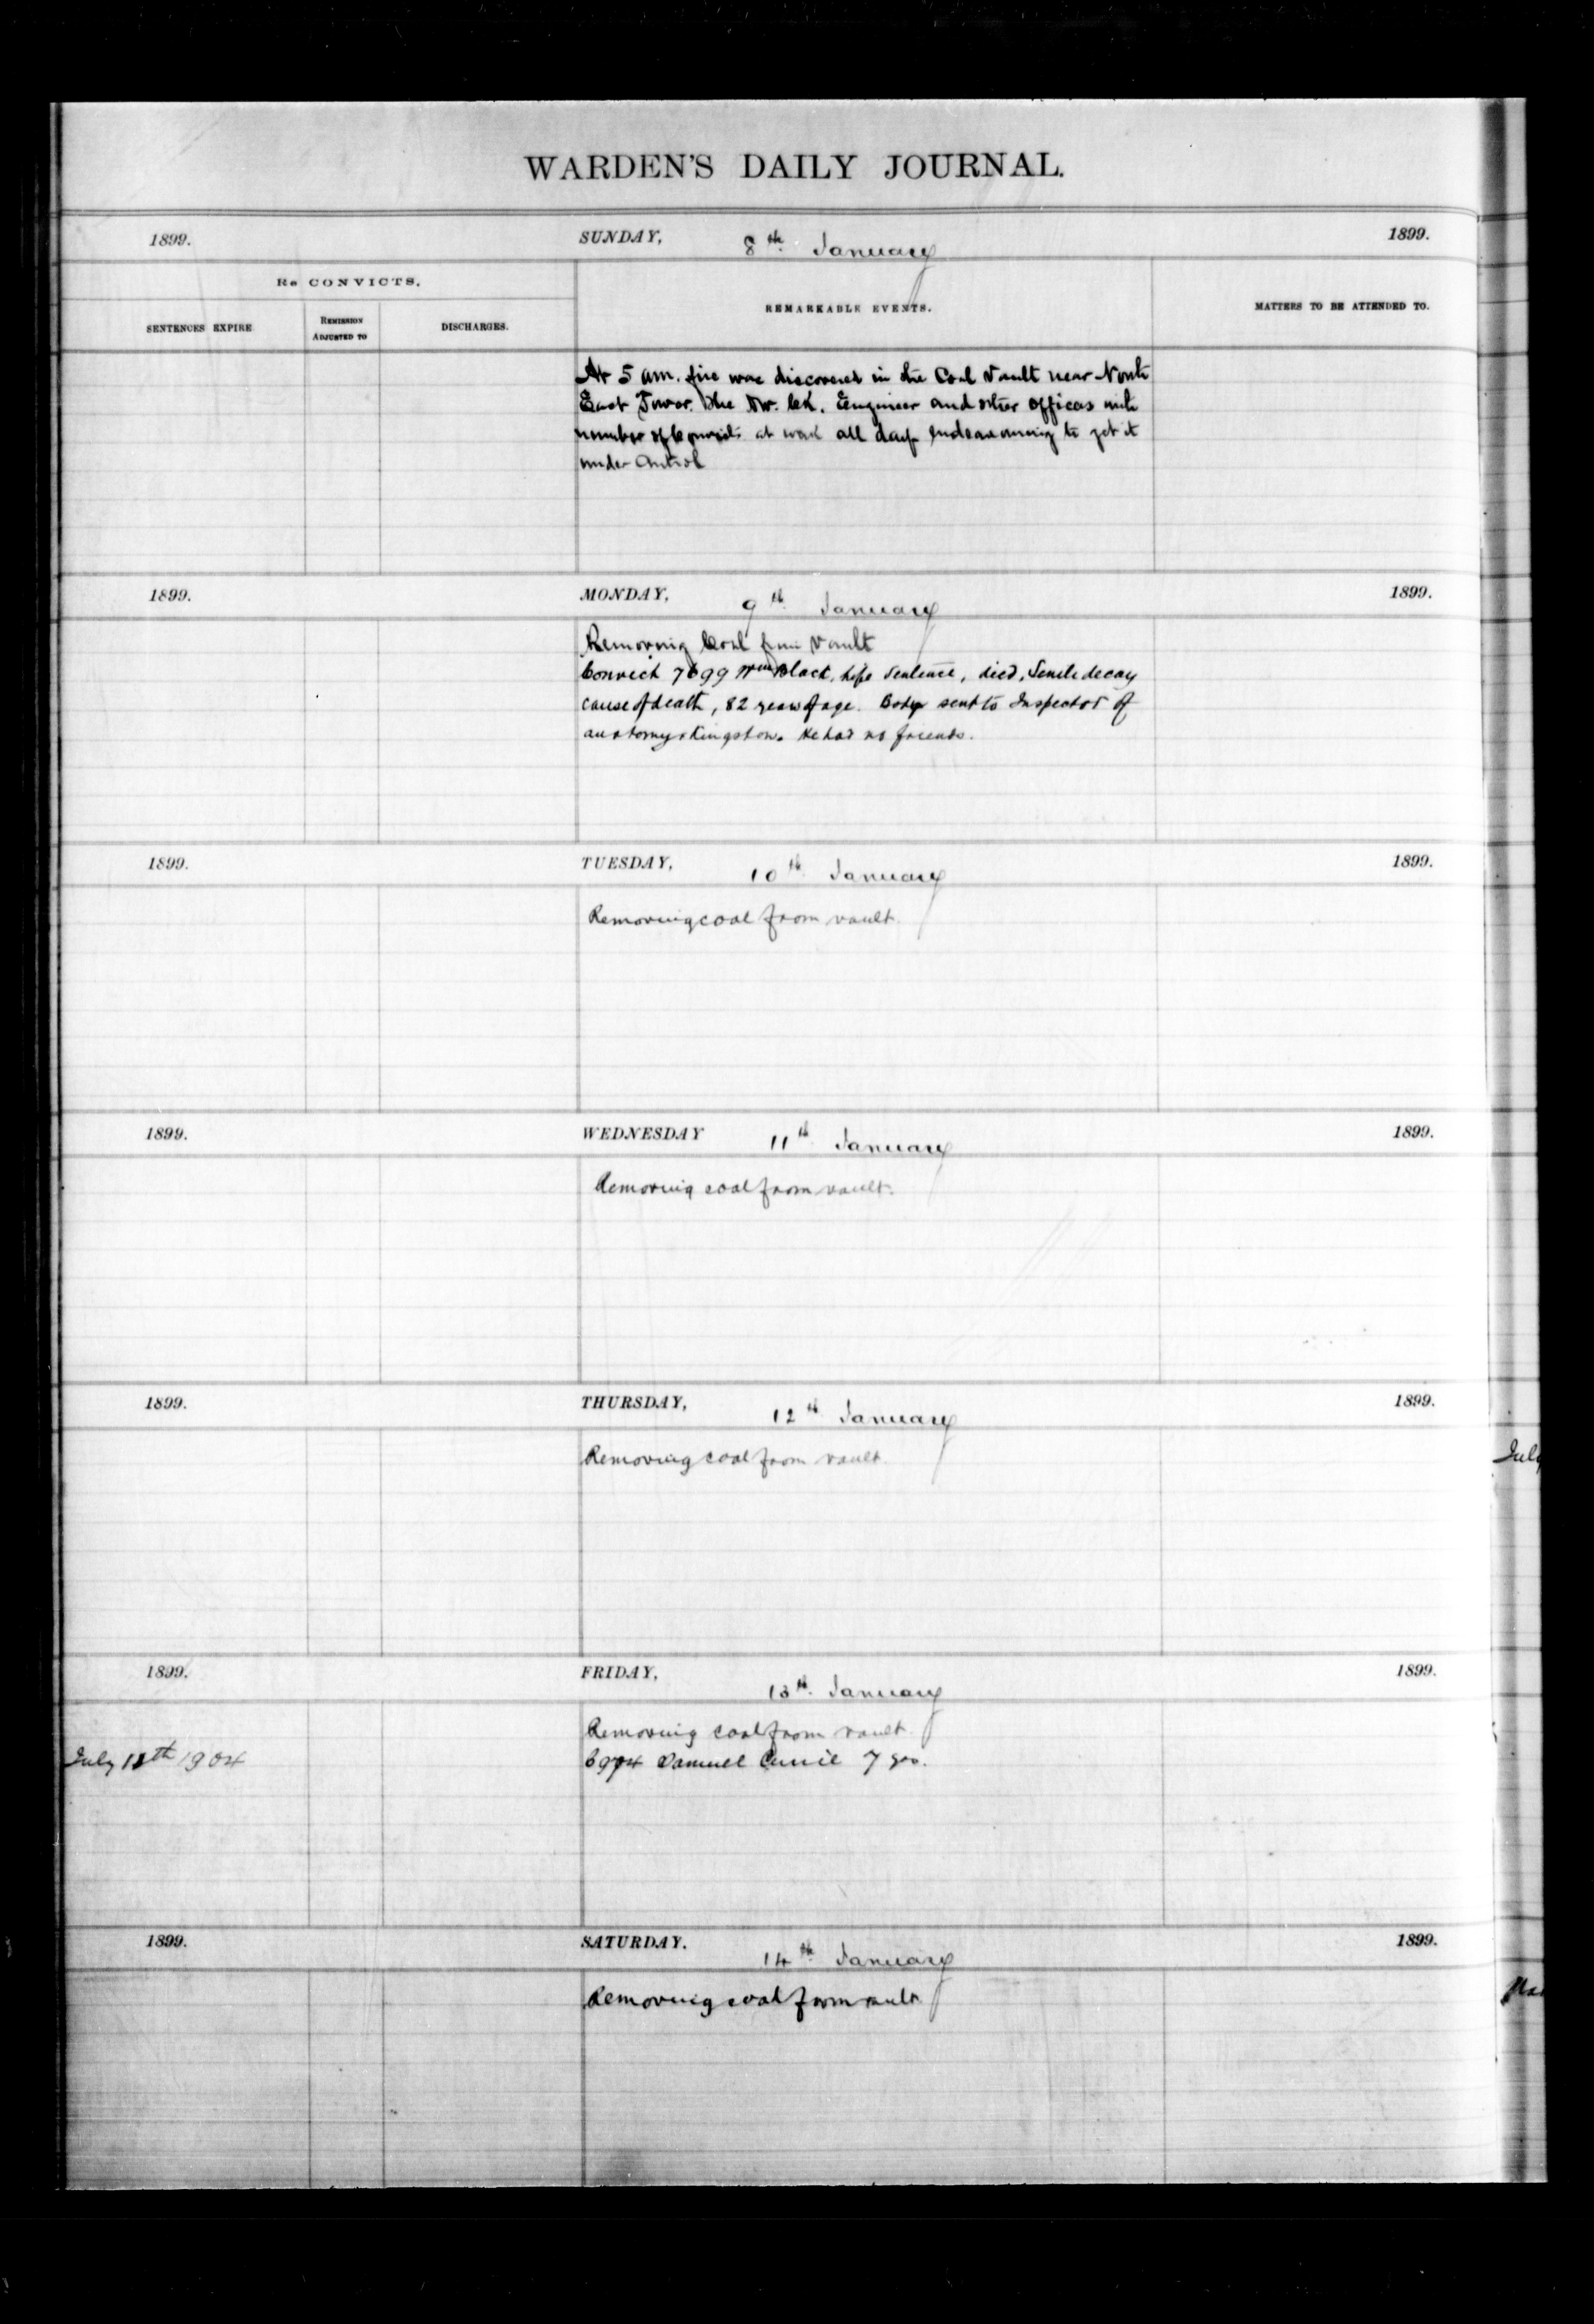 WARDEN'S DAILY JOURNAL.
1899. SUNDAY, 8th January 1899.
Re CONVICTS.
REMARKABLE EVENTS. MATTERS TO BE ATTENDED TO.
SENTENCES EXPIRE REMISSION ADJUSTED TO DISCHARGES.
At 5 am. fire was discovered in the Coal Vault near North
East Tower. The Engineer and other officers with
number of Convicts at work all day endeavouring to get it
under Control
1899. MONDAY, 9th January 1899.
Removing Coal from Vault
Convict 7699 Wm Black, life sentence, died, Senile decay
cause of death, 82 years of age. Body sent to Inspector of
anatomy Kingston. He had no friends.
1899. TUESDAY, 10th January 1899.
Removing coal from vault.
1899. WEDNESDAY 11th January 1899.
Removing coal from vault.
1899. THURSDAY, 12th January 1899.
Removing coal from vault.
July
1899. FRIDAY, 13th January 1899.
Removing coal from vault.
July 1904 Samuel 7 yrs.
1899. SATURDAY. 14th January 1899.
Removing coal from vault.